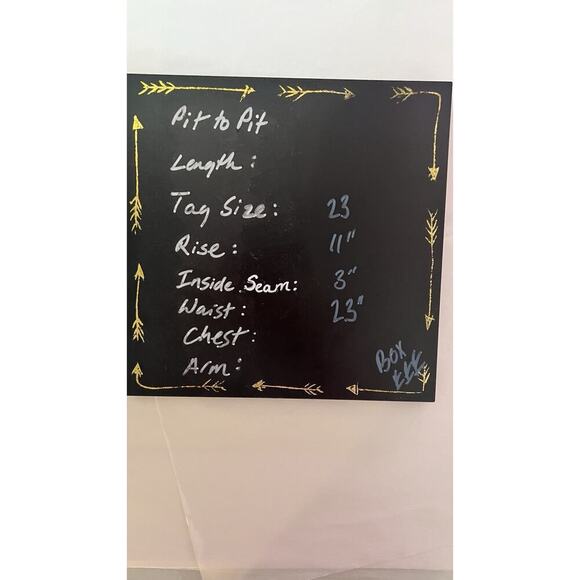 Pit to Pit
Length:
Tag Size: 23
Rise: 11"
Inside Seam: 3"
Waist: 23"
Chest:
Arm:
BOX
EEE